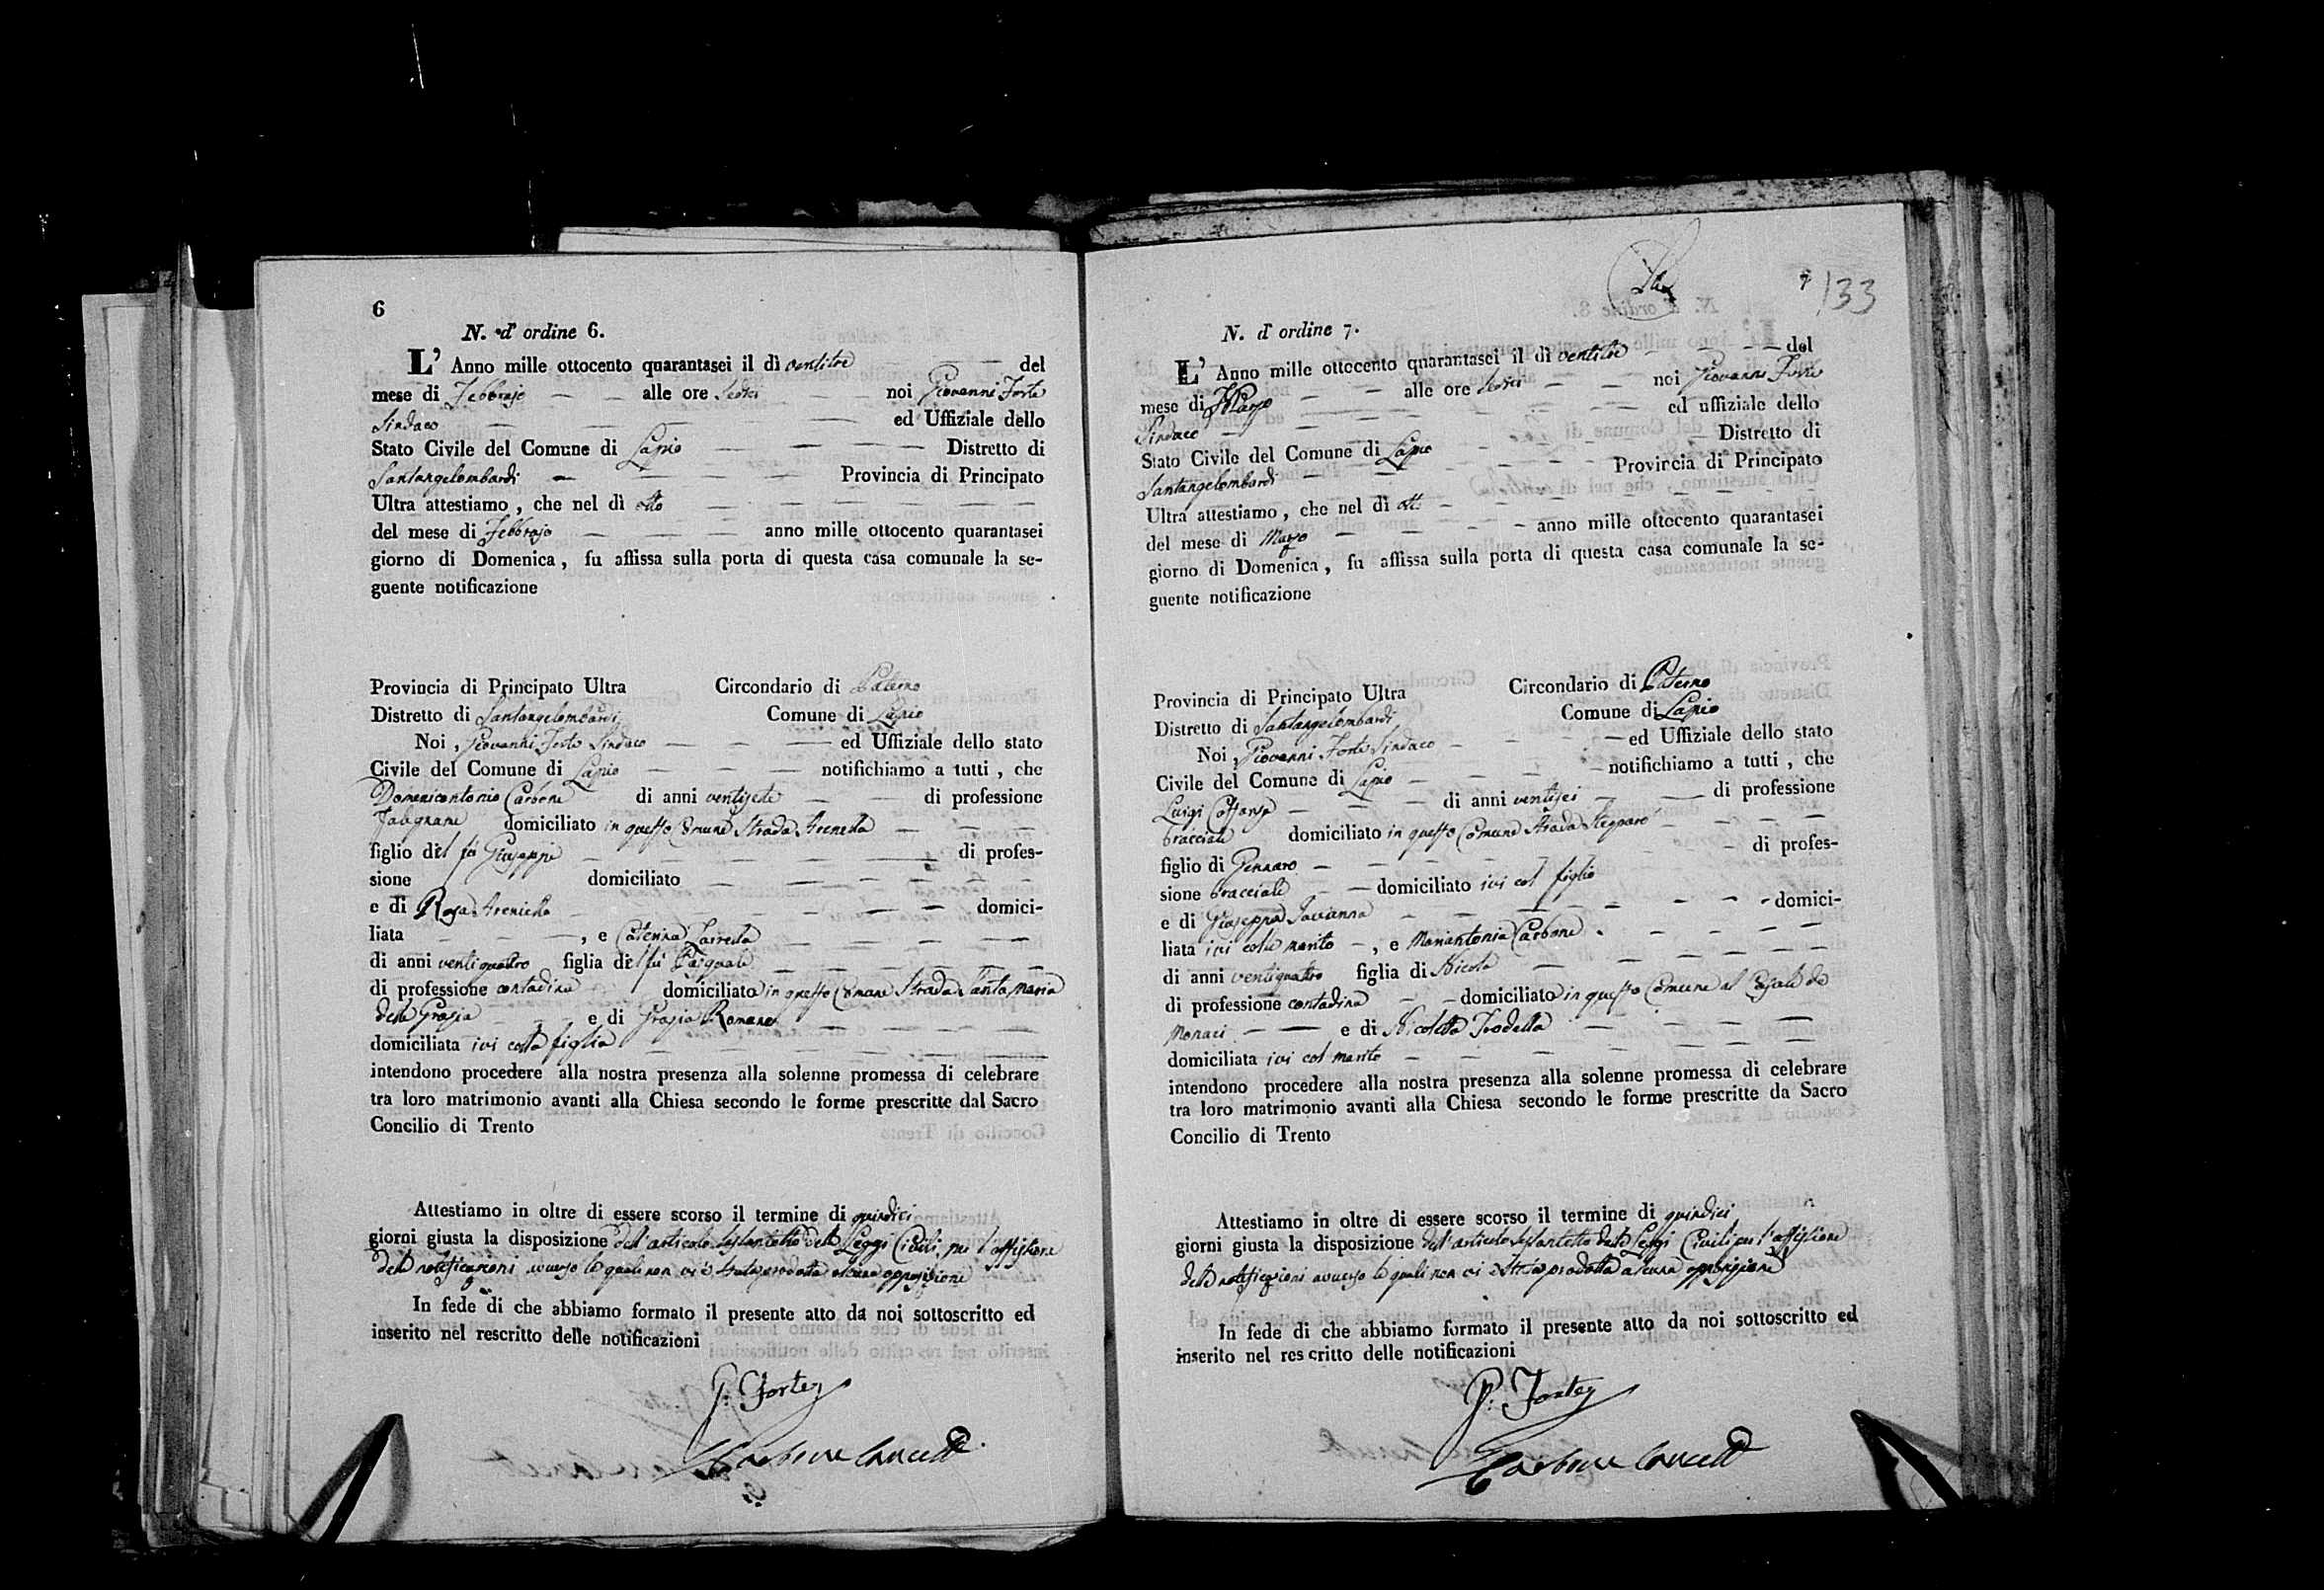 6
N. d' ordine 6.
L' Anno mille ottocento quarantasei il dì ventitre del
mese di Febbrajo alle ore sedici noi Giovanni Forte
Sindaco ed Uffiziale dello
Stato Civile del Comune di Lapio Distretto di
Santangelombardi Provincia di Principato
Ultra attestiamo, che nel dì otto
del mese di Febbrajo anno mille ottocento quarantasei
giorno di Domenica, fu affissa sulla porta di questa casa comunale la se-
guente notificazione
Provincia di Principato Ultra Circondario di Paterno
Distretto di Santangelombardi Comune di Lapio
Noi, Giovanni Forte Sindaco ed Uffiziale dello stato
Civile del Comune di Lapio notifichiamo a tutti, che
Domenicantonio Carbone di anni ventisette di professione
Falegname domiciliato in questo Comune Strada Arenella
figlio del fu Giuseppe di profes-
sione domiciliato
e di Rosa Areniello domici-
liata , e Caterina
di anni ventiquattro figlia del fu Pasquale
di professione contadina domiciliato in questo Comune Strada Santa Maria
della Grazia e di Grazia Romano
domiciliata ivi colla figlia
intendono procedere alla nostra presenza alla solenne promessa di celebrare
tra loro matrimonio avanti alla Chiesa secondo le forme prescritte dal Sacro
Concilio di Trento
Attestiamo in oltre di essere scorso il termine di quindici
giorni giusta la disposizione dell'articolo sessantotto delle Leggi Civili, per l'affissione
delle notificazioni avverso le quali non vi è stata prodotta alcuna opposizione
In fede di che abbiamo formato il presente atto da noi sottoscritto ed
inserito nel rescritto delle notificazioni
G. Forte
Carbone Cancell.
7 133
N. d' ordine 7.
L' Anno mille ottocento quarantasei il dì ventitre del
mese di Marzo alle ore sedici noi Giovanni Forte
Sindaco ed uffiziale dello
Stato Civile del Comune di Lapio Distretto di
Santangelombardi Provincia di Principato
Ultra attestiamo, che nel dì otto
del mese di Marzo anno mille ottocento quarantasei
giorno di Domenica, fu affissa sulla porta di questa casa comunale la se-
guente notificazione
Provincia di Principato Ultra Circondario di Paterno
Distretto di Santangelombardi Comune di Lapio
Noi, Giovanni Forte Sindaco ed Uffiziale dello stato
Civile del Comune di Lapio notifichiamo a tutti, che
Luigi di anni ventisei di professione
bracciale domiciliato in questo Comune Strada
figlio di Gennaro di profes-
sione bracciale domiciliato ivi col figlio
e di Giuseppa Iovanna domici-
liata ivi colu marito , e Mariantonia Carbone
di anni ventiquattro figlia di Nicola
di professione contadina domiciliato in questo Comune al Casale de
Monaci e di Nicoletta Trodella
domiciliata ivi col marito
intendono procedere alla nostra presenza alla solenne promessa di celebrare
tra loro matrimonio avanti alla Chiesa secondo le forme prescritte da Sacro
Concilio di Trento
Attestiamo in oltre di essere scorso il termine di quindici
giorni giusta la disposizione dell'articolo sessantotto delle Leggi Civili per l'affissione
delle notificazioni avverso le quali non vi è stata prodotta alcuna opposizione
In fede di che abbiamo formato il presente atto da noi sottoscritto ed
inserito nel res critto delle notificazioni
G. Forte
Carbone Cancell.